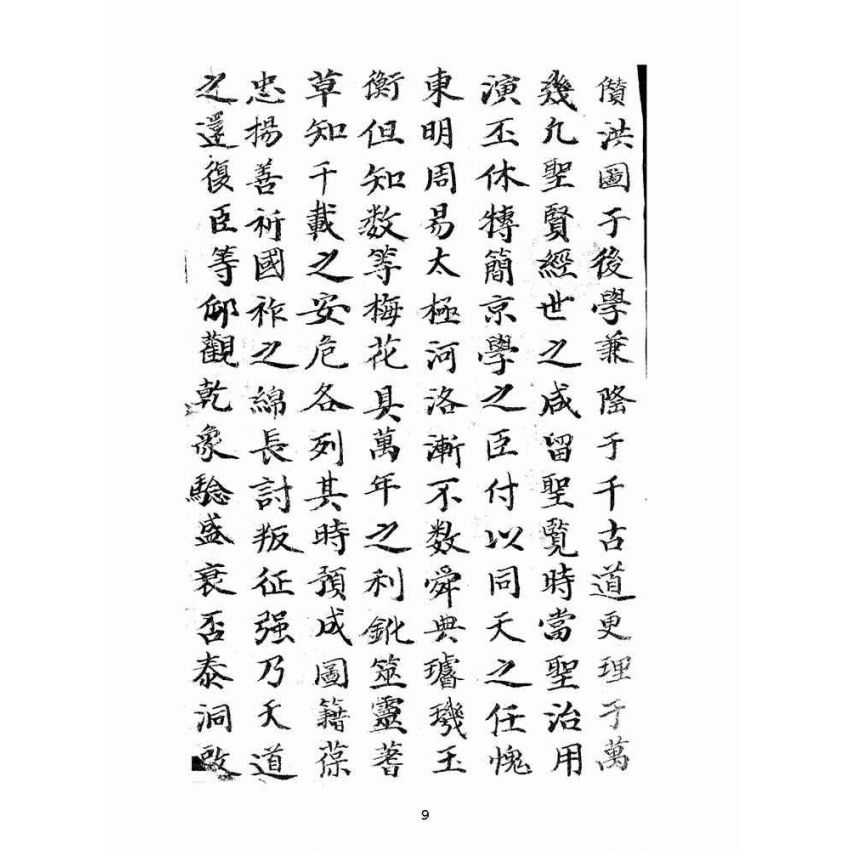 儹洪圖于後學兼隂于千古道更理于萬
幾凢聖賢經世之咸留聖覧時當聖治用
演丕休愽簡京學之臣付以同天之任愧
東明周易太極河洛漸不数舜典璿璣玉
衡但知数等梅花具萬年之利鈋筮靈蓍
草知千載之安危各列其時預成圖籍葆
忠揚善祈國祚之綿長討叛征强乃天道
之還復臣等仰觀乾象騐盛衰否泰洞啟
9